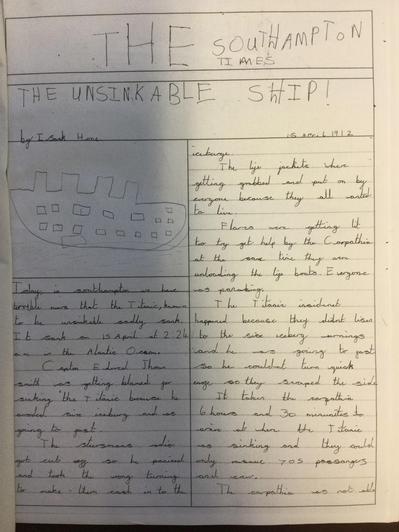 THE SOUTHAMPTON
TIMES
THE UNSINKABLE SHIP!
by I Sank Home
15 April 1912
Today in southampton we have
terrible news that the Titanic, known
to be unsinkable sadly sank.
It sank on 15 April at 2:20
am in the Alantic Ocean.
Captin Edward Jhon
smith was getting blamed for
sinking the Titanic because he
avoided six iceburg and was
going to fast.
The stursmans radio
got cut off so he paniced
and took the wrong turning
to make them crash in to the
iceburge.
The life jackets where
getting grabbed and put on by
everyone because they all wanted
to live.
Flares were getting lit
to try get help by the Carpathia
at the same time they were
unloading the life boats. Everyone
was panicking.
The Titanic insident
happened because they didnt lisen
to the six iceberg wornings
and he was going to fast
so he couldnt turn quick
enugh so they scraped the side
It taken the carpathia
6 hours and 30 minuites to
arive at when the Titanic
was sinking and they could
only resue 705 passangers
and crew.
The carpathia was not able